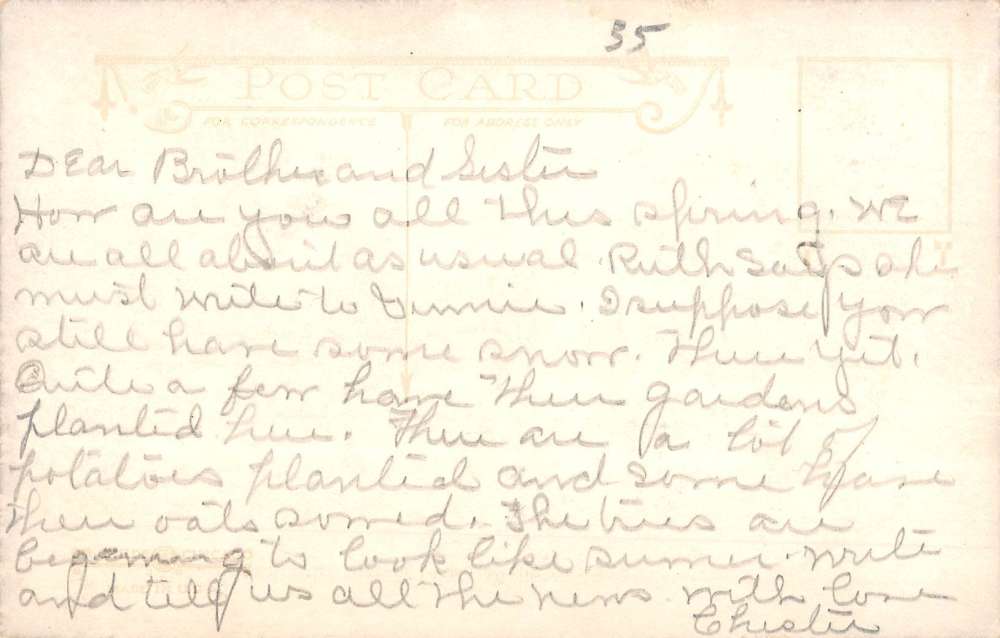 35
POST CARD
FOR CORRESPONDENCE FOR ADDRESS ONLY
Dear Brother and Sister
How are you all this spring. We
are all about as usual. Ruth says she
must write to . I suppose you
still have some snow. There yet.
Quite a few have their gardens
planted here. There are a lot of
potatoes planted and some have
their oats sowed. The trees are
to look like sumer. write
and tell us all the news with love
Chester